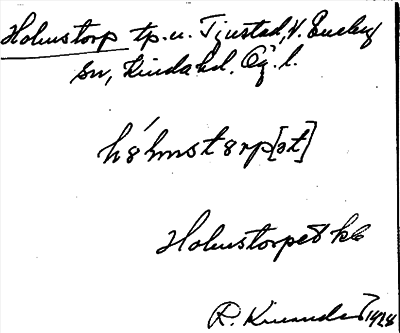 Holmstorp tp. u. Tjustad, V. Eneby
sn, Kinda hd. Ög. l.
hó̀lmstərp[ət]
Holmstorpet kb
R. Kinander 1928